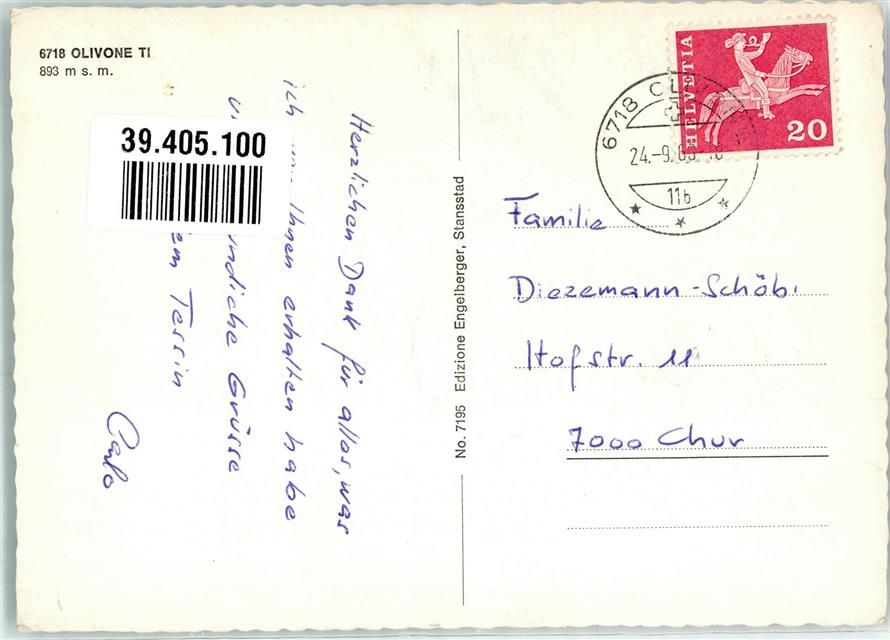 6718 OLIVONE TI
893 m s. m.
39.405.100
Herzlichen Dank für alles, was
ich Ihnen erhalten habe
Grüsse
Tessin
Carlo
No. 7195 Edizione Engelberger, Stansstad
HELVETIA
20
6718
24.-9.
11b
Familie
Diezemann-Schöbi
Hofstr. 11
7000 Chur